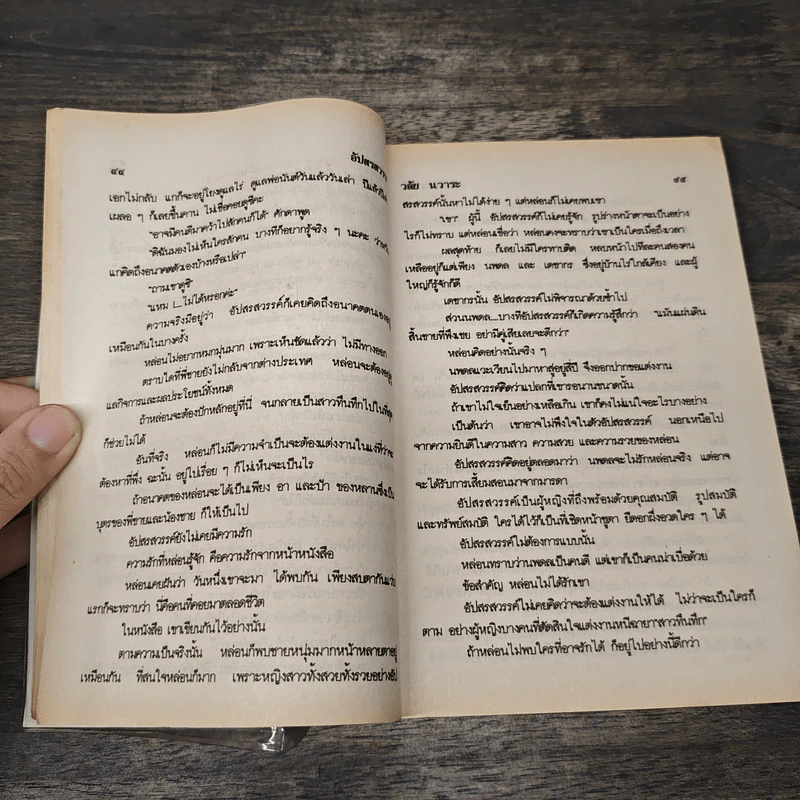 ๔๔
อัปสรสวรร
เอกไม่กลับ แกก็จะอยู่โยงดูแลไร่ ดูแลพ่อนันต์วันแล้ววันเล่า ปีแล้วปีเล่า
เผลอ ๆ ก็เลยขึ้นคาน ไม่เชื่อคอยดูซีคะ
"อาจมีคนดีมาคว้าไปสักคนก็ได้" ศักดาพูด
"ดิฉันมองไม่เห็นใครสักคน บางทีก็อยากรู้จริง ๆ นะคะ ว่า
แกคิดถึงอนาคตตัวเองบ้างหรือเปล่า"
"ถามเขาดูซิ"
"แหม !...ไม่ได้หรอกค่ะ"
ความจริงมีอยู่ว่า อัปสรสวรรค์ก็เคยคิดถึงอนาคตตนเอง
เหมือนกันในบางครั้ง
หล่อนไม่อยากหมกมุ่นมาก เพราะเห็นชัดแล้วว่า ไม่มีทางออก
ตราบใดที่พี่ชายยังไม่กลับจากต่างประเทศ หล่อนจะต้อง
แลกิจการและผลประโยชน์ทั้งหมด
ถ้าหล่อนจะต้องปักหลักอยู่ที่นี่ จนกลายเป็นสาวทึนทึกไปในที่สุด
ก็ช่วยไม่ได้
อันที่จริง หล่อนก็ไม่มีความจำเป็นจะต้องแต่งงานในแง่ที่ว่าจะ
ต้องหาที่พึ่ง ฉะนั้น อยู่ไปเรื่อย ๆ ก็ไม่เห็นจะเป็นไร
ถ้าอนาคตของหล่อนจะได้เป็นเพียง อา และป้า ของหลานซึ่งเป็น
บุตรของพี่ชายและน้องชาย ก็ให้เป็นไป
อัปสรสวรรค์ยังไม่เคยมีความรัก
ความรักที่หล่อนรู้จัก คือความรักจากหน้าหนังสือ
หล่อนเคยฝันว่า วันหนึ่งเขาจะมา ได้พบกัน เพียงสบตากัน
แรกก็จะทราบว่า นี่คือคนที่คอยมาตลอดชีวิต
ในหนังสือ เขาเขียนกันไว้อย่างนั้น
ตามความเป็นจริงนั้น หล่อนก็พบชายหนุ่มมากหน้าหลายตาอยู่
เหมือนกัน ที่สนใจหล่อนก็มาก เพราะหญิงสาวทั้งสวยทั้งรวยอย่างอัป
วลัย นวาระ
๔๕
สรสวรรค์นั้นหาไม่ได้ง่าย ๆ แต่หล่อนก็ไม่เคยพบเขา
"เขา" ผู้นี้ อัปสรสวรรค์ก็ไม่เคยรู้จัก รูปร่างหน้าตาจะเป็นอย่าง
ไรก็ไม่ทราบ แต่หล่อนเชื่อว่า หล่อนคงจะทราบว่าเขาเป็นใครเมื่อถึงเวลา
ผลสุดท้าย ก็เลยไม่มีใครทาบติด หลบหน้าไปทีละคนสองคน
เหลืออยู่ก็แต่เพียง นพดล และ เดชากร ซึ่งอยู่บ้านไร่ใกล้เคียง และผู้
ใหญ่ก็รู้จักก็ดี
เดชากรนั้น อัปสรสวรรค์ไม่พิจารณาด้วยซ้ำไป
ส่วนนพดล...บางทีอัปสรสวรรค์ก็เกิดความรู้สึกว่า "แม้นแผ่นดิน
สิ้นชายที่พึงเชย อย่ามีคู่เสียเลยจะดีกว่า"
หล่อนคิดอย่างนั้นจริง ๆ
นพดลแวะเวียนไปมาหาสู่อยู่สี่ปี จึงออกปากขอแต่งงาน
อัปสรสวรรค์คิดว่าแปลกที่เขารอนานขนาดนั้น
ถ้าเขาไม่ใจเย็นอย่างเหลือเกิน เขาก็คงไม่แน่ใจอะไรบางอย่าง
เป็นต้นว่า เขาอาจไม่พึงใจในตัวอัปสรสวรรค์ นอกเหนือไป
จากความยินดีในความสาว ความสวย และความรวยของหล่อน
อัปสรสวรรค์คิดอยู่ตลอดมาว่า นพดลจะไม่รักหล่อนจริง แต่อาจ
จะได้รับการเสี้ยมสอนมาจากมารดา
อัปสรสวรรค์เป็นผู้หญิงที่ถึงพร้อมด้วยคุณสมบัติ รูปสมบัติ
และทรัพย์สมบัติ ใครได้ไว้ก็เป็นที่เชิดหน้าชูตา ยืดอกผึ่งอวดใคร ๆ ได้
อัปสรสวรรค์ไม่ต้องการแบบนั้น
หล่อนทราบว่านพดลเป็นคนดี แต่เขาก็เป็นคนน่าเบื่อด้วย
ข้อสำคัญ หล่อนไม่ได้รักเขา
อัปสรสวรรค์ไม่เคยคิดว่าจะต้องแต่งงานให้ได้ ไม่ว่าจะเป็นใครก็
ตาม อย่างผู้หญิงบางคนที่ตัดสินใจแต่งงานหนีฉายา"สาวทึนทึก"
ถ้าหล่อนไม่พบใครที่อาจรักได้ ก็อยู่ไปอย่างนี้ดีกว่า